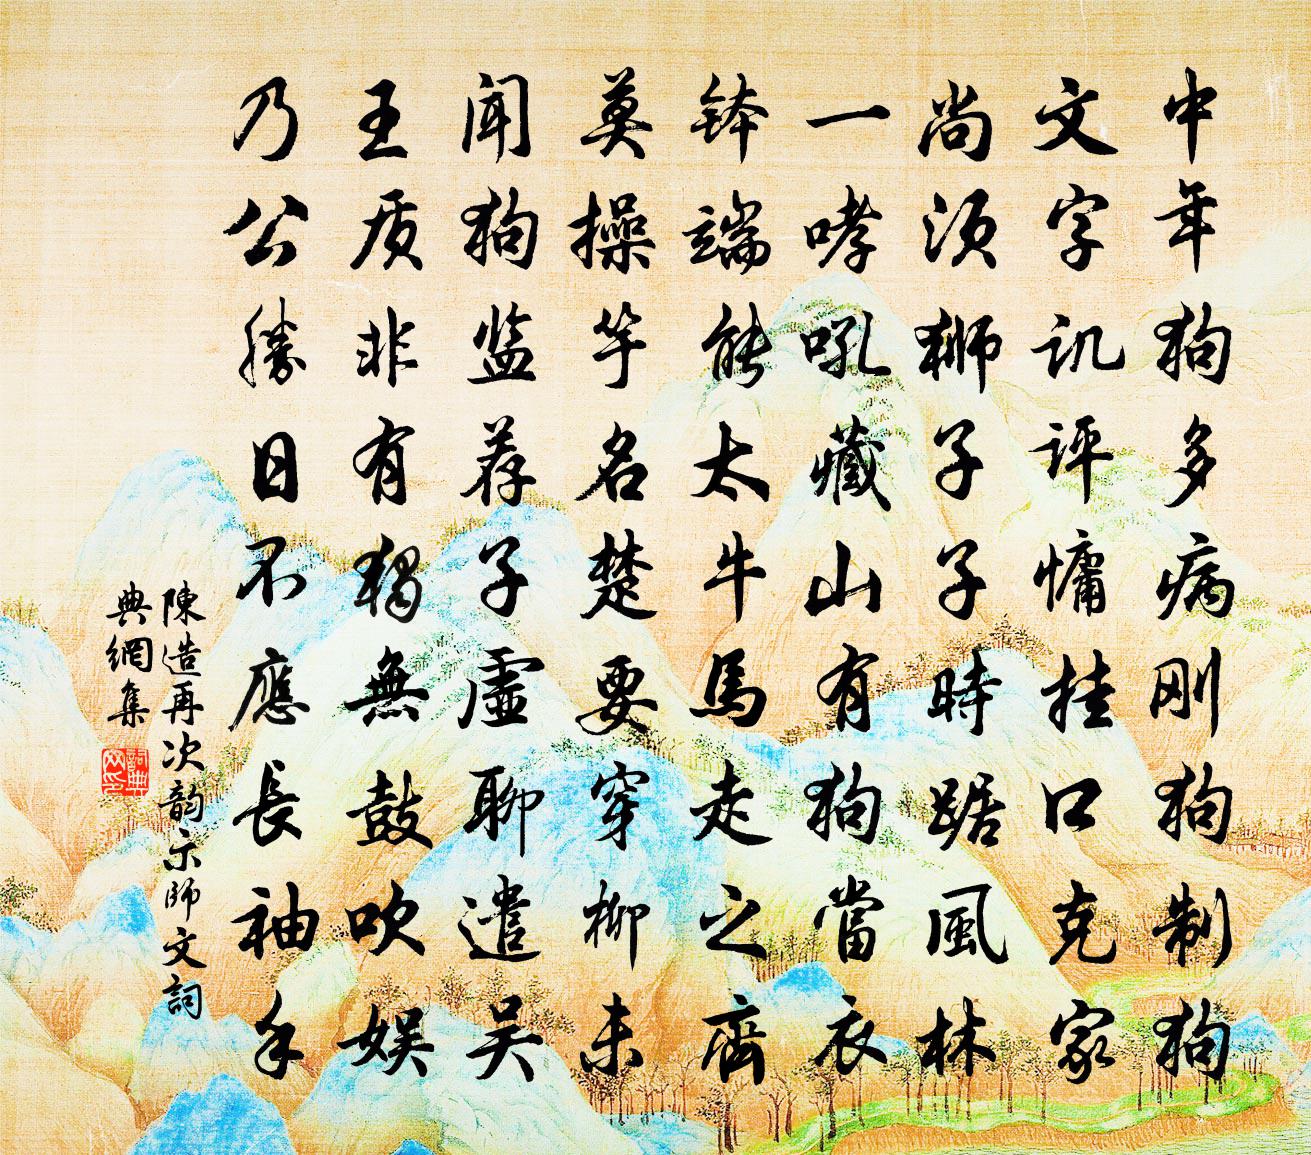 中年狗多病刚狗制狗
文字讥评慵挂口克家
尚须狮子子時踞風林
一哮吼藏山有狗當衣
钵端能太牛馬走之齊
莫操竽名楚要穿柳未
闻狗监荐子虛聊遣吴
王质非有獨無鼓吹娱
乃公勝日不應長袖手
陳造再次韵示師文詞
典網集